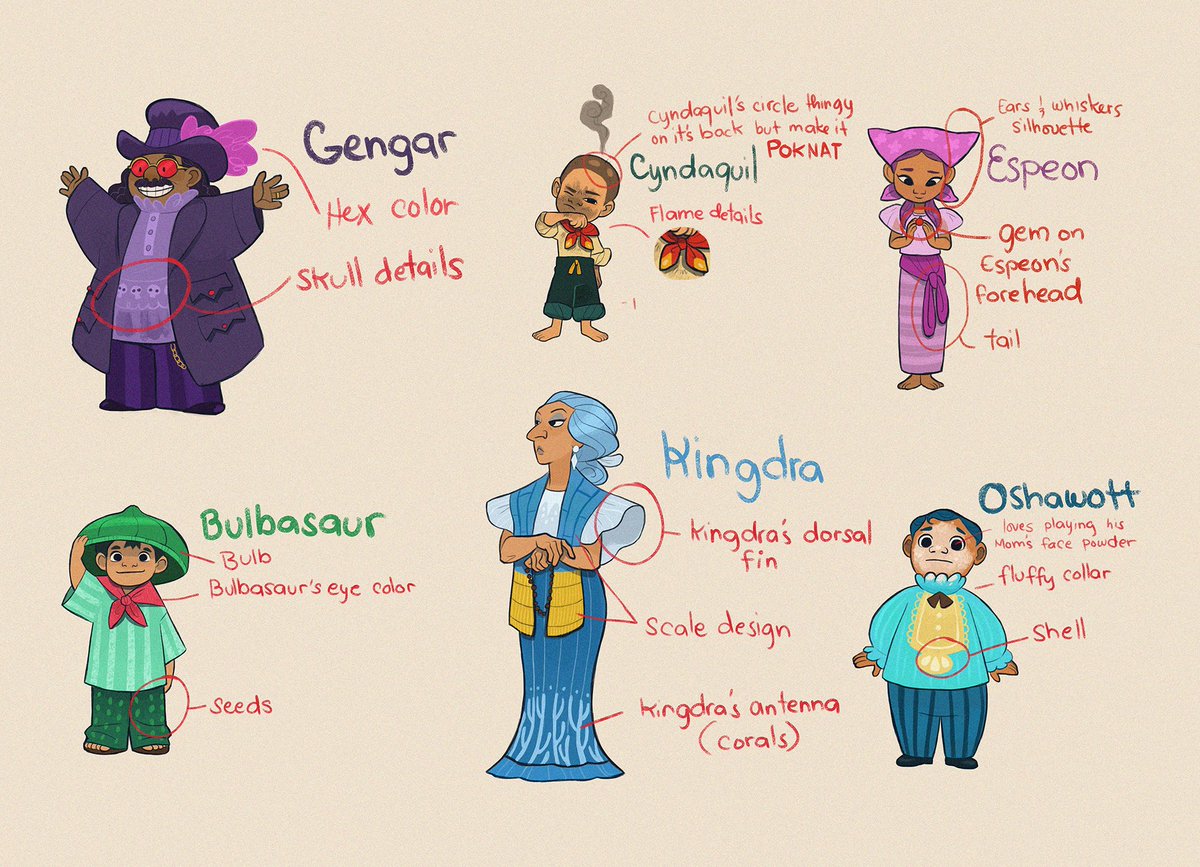 Gengar
Hex color
Skull details
cyndaquil's circle thingy
on it's back but make it
POKNAT
Cyndaquil
Flame details
Ears & whiskers
silhouette
Espeon
gem on
Espeon's
forehead
tail
Bulbasaur
Bulb
Bulbasaur's eye color
Seeds
Kingdra
Kingdra's dorsal
fin
Scale design
Kingdra's antenna
(corals)
Oshawott
loves playing his
Mom's face powder
fluffy collar
Shell